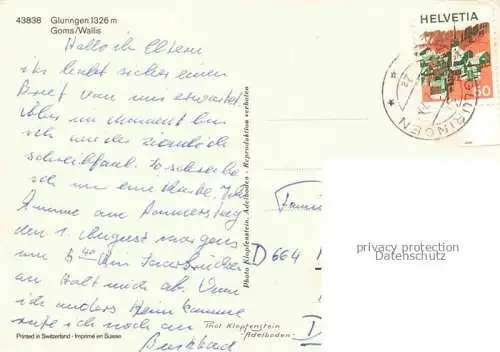 43838 Gluringen 1326 m
Goms/Wallis
HELVETIA
60
GLURINGEN
Hallo ihr Eltern
ihr habt sicher einen
Brief von uns erwartet
Aber im Moment bin
ich wieder ziemlich
schreibfaul. So schreibe
ich nur eine Karte. Ich
komme am Donnerstag
den 1. August morgens
um 5 40 in Saarbrücken
an holt mich ab. Wenn
ich anders heim komme
rufe ich noch an
Photo Klopfenstein, Adelboden - Reproduktion verboten
D 664
privacy protection
Datenschutz
Thöl Klopfenstein
Adelboden
Printed in Switzerland - Imprimé en Suisse